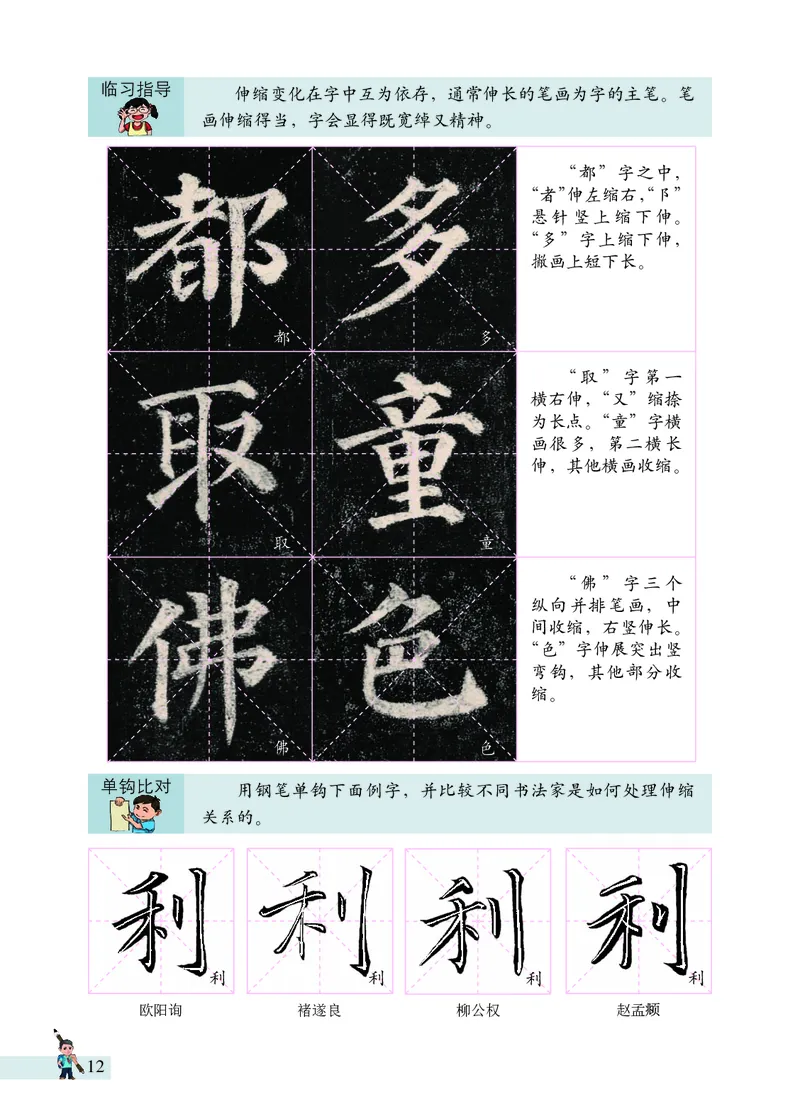 临习指导
伸缩变化在字中互为依存，通常伸长的笔画为字的主笔。笔
画伸缩得当，字会显得既宽绰又精神。
都 多
都 多
“都”字之中，
“者”伸左缩右，“阝”
悬针竖上缩下伸。
“多”字上缩下伸，
撇画上短下长。
取 童
取 童
“取”字第一
横右伸，“又”缩捺
为长点。“童”字横
画很多，第二横长
伸，其他横画收缩。
佛 色
佛 色
“佛”字三个
纵向并排笔画，中
间收缩，右竖伸长。
“色”字伸展突出竖
弯钩，其他部分收
缩。
单钩比对
用钢笔单钩下面例字，并比较不同书法家是如何处理伸缩
关系的。
利 利 利 利
利 利 利 利
欧阳询 褚遂良 柳公权 赵孟𫖯
12